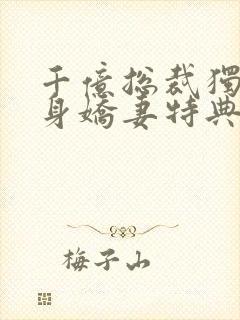 千億總裁獨
身嬌妻特典
梅子山